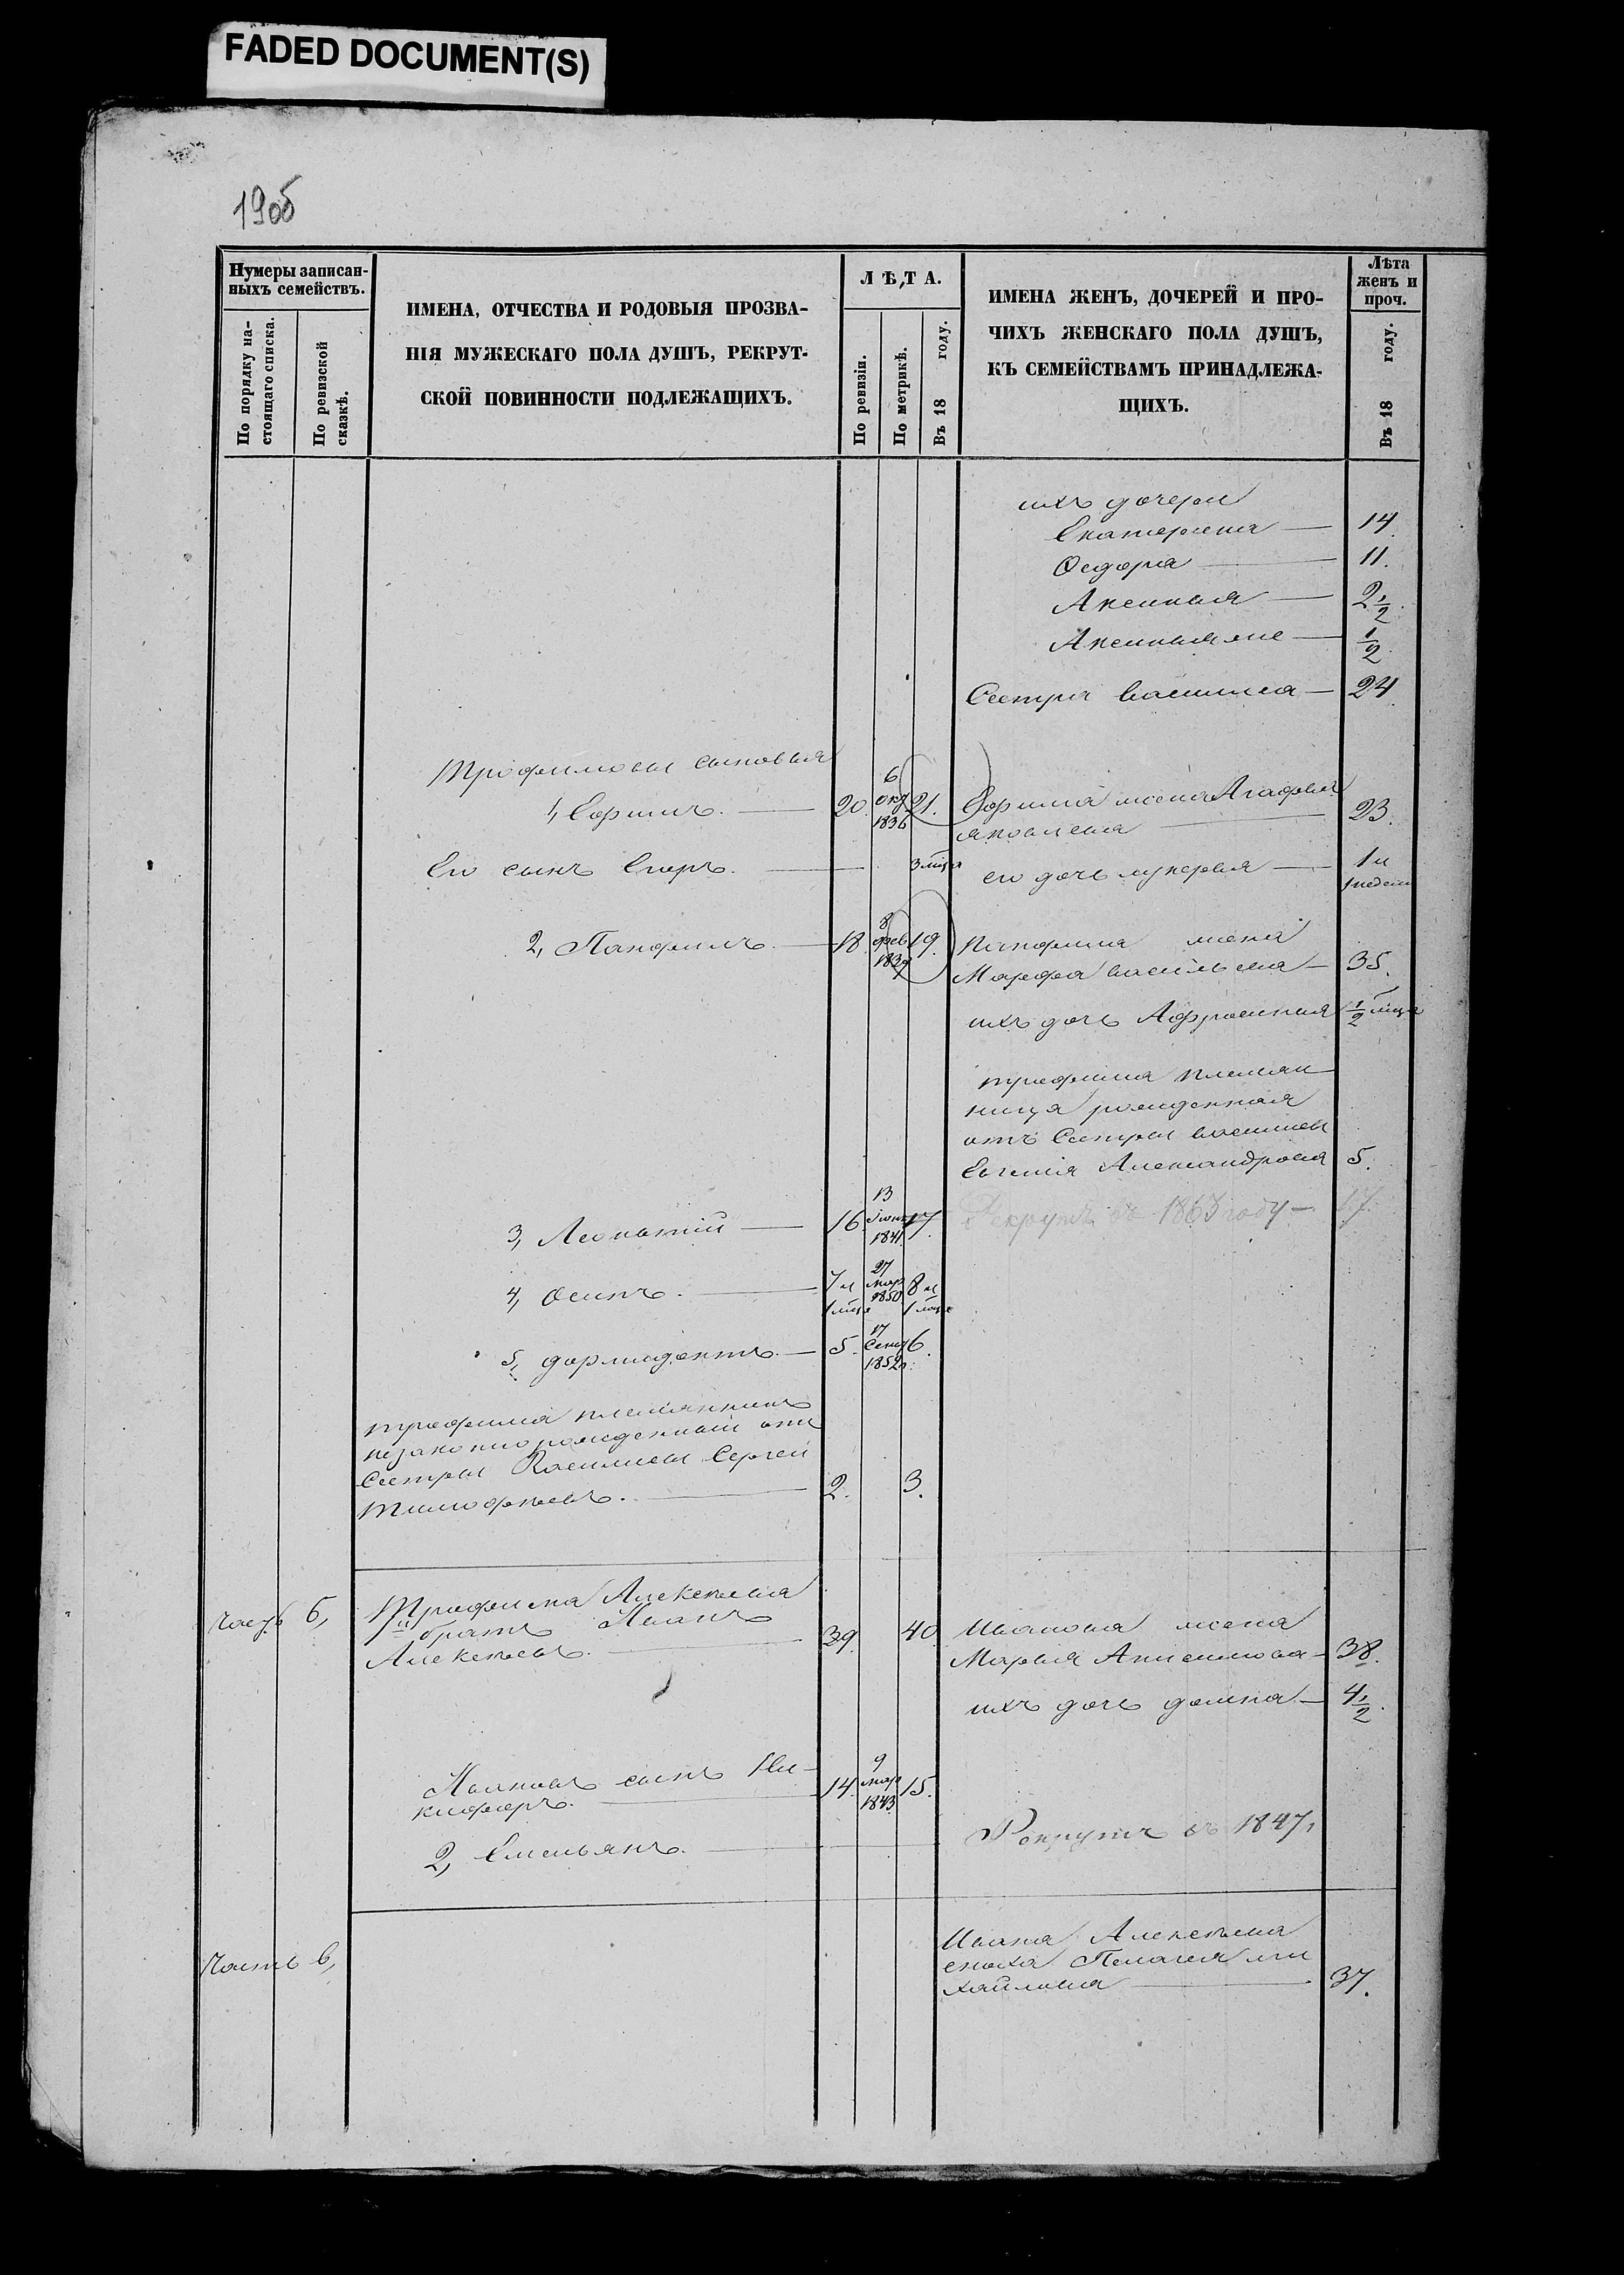 FADED DOCUMENT(S)
190б
Нумеры записан-
ныхъ семействъ.
По порядку на-
стоящаго списка.
По ревизской
сказкѣ.
ИМЕНА, ОТЧЕСТВА И РОДОВЫЯ ПРОЗВА-
НІЯ МУЖЕСКАГО ПОЛА ДУШЪ, РЕКРУТ-
СКОЙ ПОВИННОСТИ ПОДЛЕЖАЩИХЪ.
ЛѢТА.
По ревизіи.
По метрикѣ.
Въ 18 году.
ИМЕНА ЖЕНЪ, ДОЧЕРЕЙ И ПРО-
ЧИХЪ ЖЕНСКАГО ПОЛА ДУШЪ,
КЪ СЕМЕЙСТВАМЪ ПРИНАДЛЕЖА-
ЩИХЪ.
Лѣта
женъ и
проч.
Въ 18 году.
ихъ дочери
Екатерина — 14.
Ѳедора — 11.
Аксинья — 2 1/2.
Аксинья же — 1/2.
Сестра Василиса — 24.
Трофимовы сыновья
1, Ефимъ. — 20. 6 окт 1836 21. Ефима жена Агафья
Яковлева — 23.
Его сынъ Егоръ. — 3 мѣца его дочь Лукерья — 1 и
1 недели
2, Панфилъ. — 18. 8 фев 1839 19. Панфила жена
Марфа Васильева — 35.
ихъ дочь Афросинья 1/2 мѣца
трофима племян-
ница рожденная
отъ Сестры Василисы
Евгенія Александрова 5.
3, Леонтій — 16. 13 Іюня 1841 17. Рекрутъ въ 1863 году — 17.
4, Осипъ. — 7 и 1 мѣц 27 мар 1850 8 и 1 мѣц
5, дормидонтъ. — 5. 17 Сент 1852 6.
трофима племянникъ
незаконно рожденный отъ
Сестры Василисы Сергей
Тимофѣевъ. — 2. 3.
Часть б,
Трофима Алексѣева
й братъ Иванъ
Алексѣевъ. — 39. 40. Иванова жена
Марья Анисимова — 38.
ихъ дочь домна — 4 1/2.
Ивановъ сынъ Ни-
кифоръ. — 14. 9 мар 1843 15.
2, Емельянъ. — Рекрутъ въ 1847,
Часть в,
Ивана Алексѣева
сноха Пелагея ми
хайлова — 37.